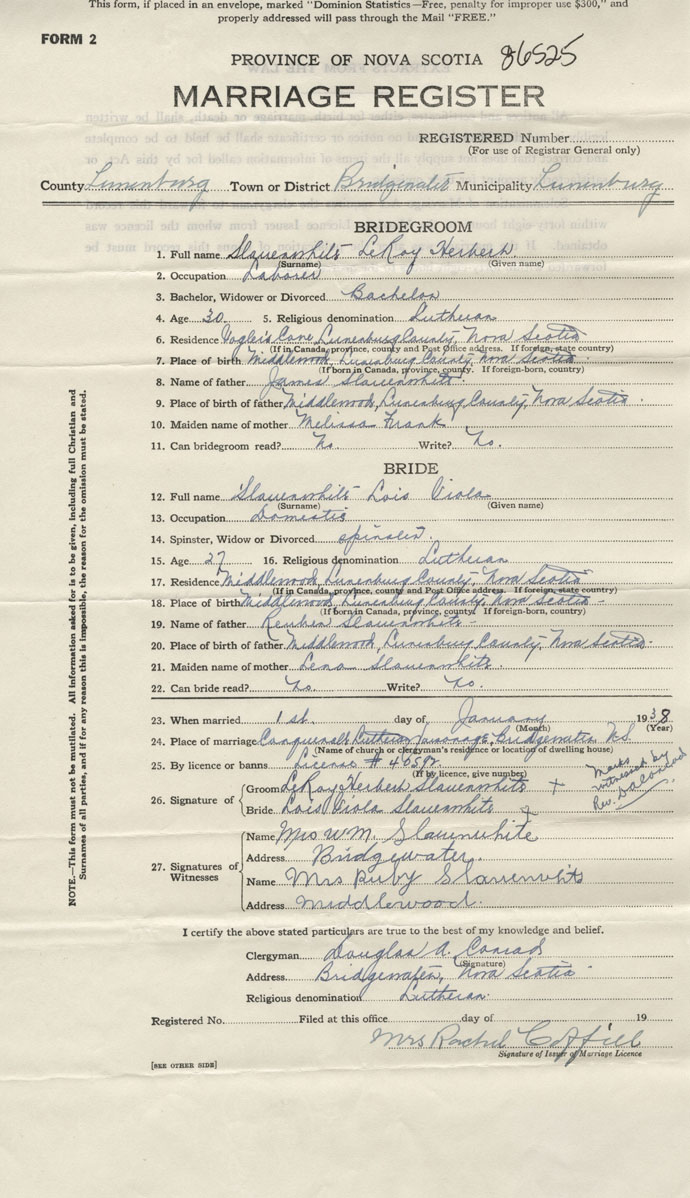 This form, if placed in an envelope, marked "Dominion Statistics—Free, penalty for improper use $300," and
properly addressed will pass through the Mail "FREE."
FORM 2
PROVINCE OF NOVA SCOTIA 86525
MARRIAGE REGISTER
REGISTERED Number
(For use of Registrar General only)
County Lunenburg Town or District Bridgewater Municipality Lunenburg
BRIDEGROOM
1. Full name Slauenwhite LeRoy Herbert
(Surname) (Given name)
2. Occupation Laborer
3. Bachelor, Widower or Divorced Bachelor
4. Age 30 5. Religious denomination Lutheran
6. Residence Vogler's Cove, Lunenburg County, Nova Scotia
(If in Canada, province, county and Post Office address. If foreign, state country)
7. Place of birth Middlewood, Lunenburg County, Nova Scotia
(If born in Canada, province, county. If foreign-born, country)
8. Name of father James Slauenwhite
9. Place of birth of father Middlewood, Lunenburg County, Nova Scotia
10. Maiden name of mother Melissa Frank
11. Can bridegroom read? No. Write? No.
BRIDE
12. Full name Slauenwhite Lois Viola
(Surname) (Given name)
13. Occupation Domestic
14. Spinster, Widow or Divorced spinster
15. Age 27 16. Religious denomination Lutheran
17. Residence Middlewood, Lunenburg County, Nova Scotia
(If in Canada, province, county and Post Office address. If foreign, state country)
18. Place of birth Middlewood, Lunenburg County, Nova Scotia
(If born in Canada, province, county. If foreign-born, country)
19. Name of father Reuben Slauenwhite
20. Place of birth of father Middlewood, Lunenburg County, Nova Scotia
21. Maiden name of mother Lena Slauenwhite
22. Can bride read? No. Write? No.
23. When married 1st. day of January 1938
(Month) (Year)
24. Place of marriage Lutheran Parsonage, Bridgewater N.S.
(Name of church or clergyman's residence or location of dwelling house)
25. By licence or banns License #
(If by licence, give number)
26. Signature of
Groom LeRoy Herbert Slauenwhite X
Bride Lois Viola Slauenwhite X
Marks witnessed by Rev. D. A. Conrad
27. Signatures of Witnesses
Name Mrs W.M. Slauenwhite
Address Bridgewater.
Name Mrs Ruby Slauenwhite
Address Middlewood.
I certify the above stated particulars are true to the best of my knowledge and belief.
Clergyman Douglas A. Conrad
(Signature)
Address Bridgewater, Nova Scotia
Religious denomination Lutheran
Registered No. Filed at this office day of 19
Mrs Rachel Coffill
Signature of Issuer of Marriage Licence
[SEE OTHER SIDE]
NOTE.—This form must not be mutilated. All Information asked for is to be given, including full Christian and
Surnames of all parties, and if for any reason this is impossible, the reason for the omission must be stated.